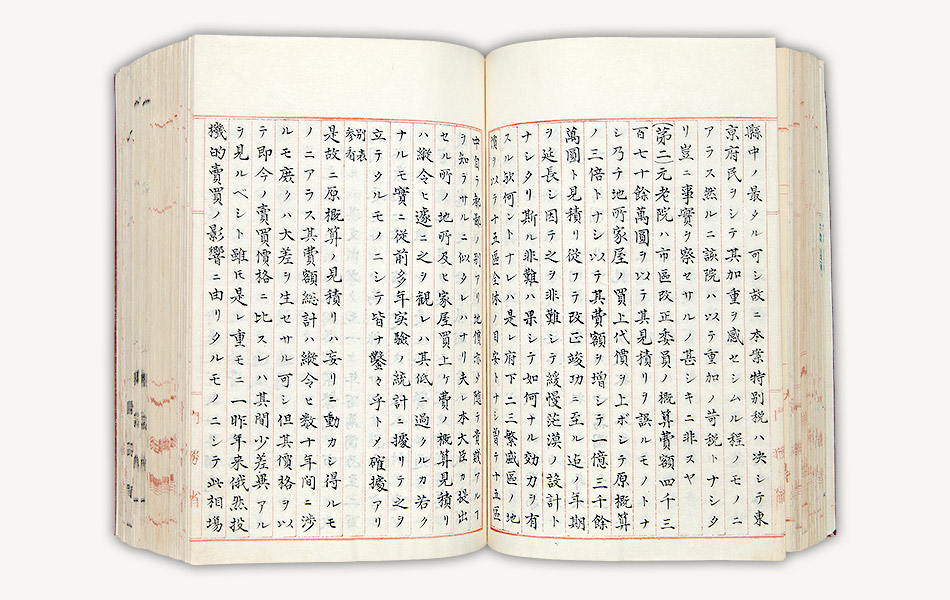 縣中ノ最タル可シ故ニ本案特別税ハ决シテ東
京府民ヲシテ其加重ヲ感セシムル程ノモノニ
アラス然ルニ該院ハ以テ重加ノ苛税トナシタ
リ豈ニ事實ヲ察セサルノ甚シキニ非スヤ
(第二)元老院ハ市區改正委員ノ概算費額四千三
百七十餘萬圓ヲ以テ其見積リヲ誤ルモノトナ
シ乃チ地所家屋ノ買上代價ヲ上ボシテ原概算
ノ三倍トナシ以テ其費額ヲ増シテ一億三千餘
萬圓ト見積リ從フテ改正竣功ニ至ル迠ノ年期
ヲ延長シ因テ之ヲ非難シテ緩慢茫漠ノ設計ト
ナシタリ斯ル非難ハ果シテ如何ナル効力ヲ有
スル歟何ントナレハ是レ府下二三繁盛區ノ地
價ヲ以テ十五區全体ノ目安トナシ曽テ十五區
中自ラ都鄙ノ別アリ地價亦タ隨テ貴賤アルヿ
ヲ知ラサルニ似タレハナリ夫レ本大臣カ提出
セル所ノ地所及ヒ家屋買上ケ費ノ概算見積リ
ハ縱令ヒ遽ニ之ヲ観レハ其低ニ過クルカ若ク
ナルモ實ニ従前多年実驗ノ統計ニ據リテ之ヲ
立テタルモノニシテ皆ナ鑿々乎トメ確據アリ
別表
参看
是故ニ原概算ノ見積リハ妄リニ動カシ得ルモ
ノニアラス其費額総計ハ縱令ヒ数十年間ニ渉
ルモ蔗クハ大差ヲ生セサル可シ但其價格ヲ以
テ即今ノ賣買價格ニ比スレハ其間少差異アル
ヲ見ルベシト雖モ是レ重モニ一昨年来俄然投
機的賣買ノ影響ニ由リタルモノニシテ此相場